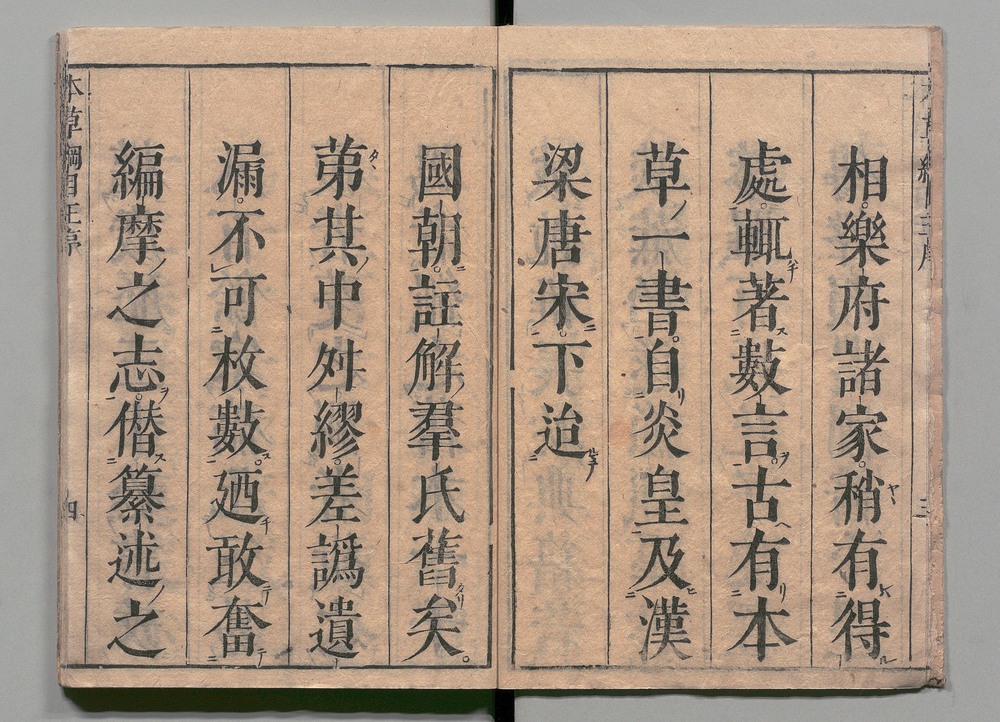 相樂府諸家稍有得
處輒著數言古有本
草一書自炎皇及漢
梁唐宋下迨
國朝註解羣氏舊矣
苐其中舛繆差譌遺
漏不可枚數廼敢奮
編摩之志僣纂述之
本草綱目王序
四